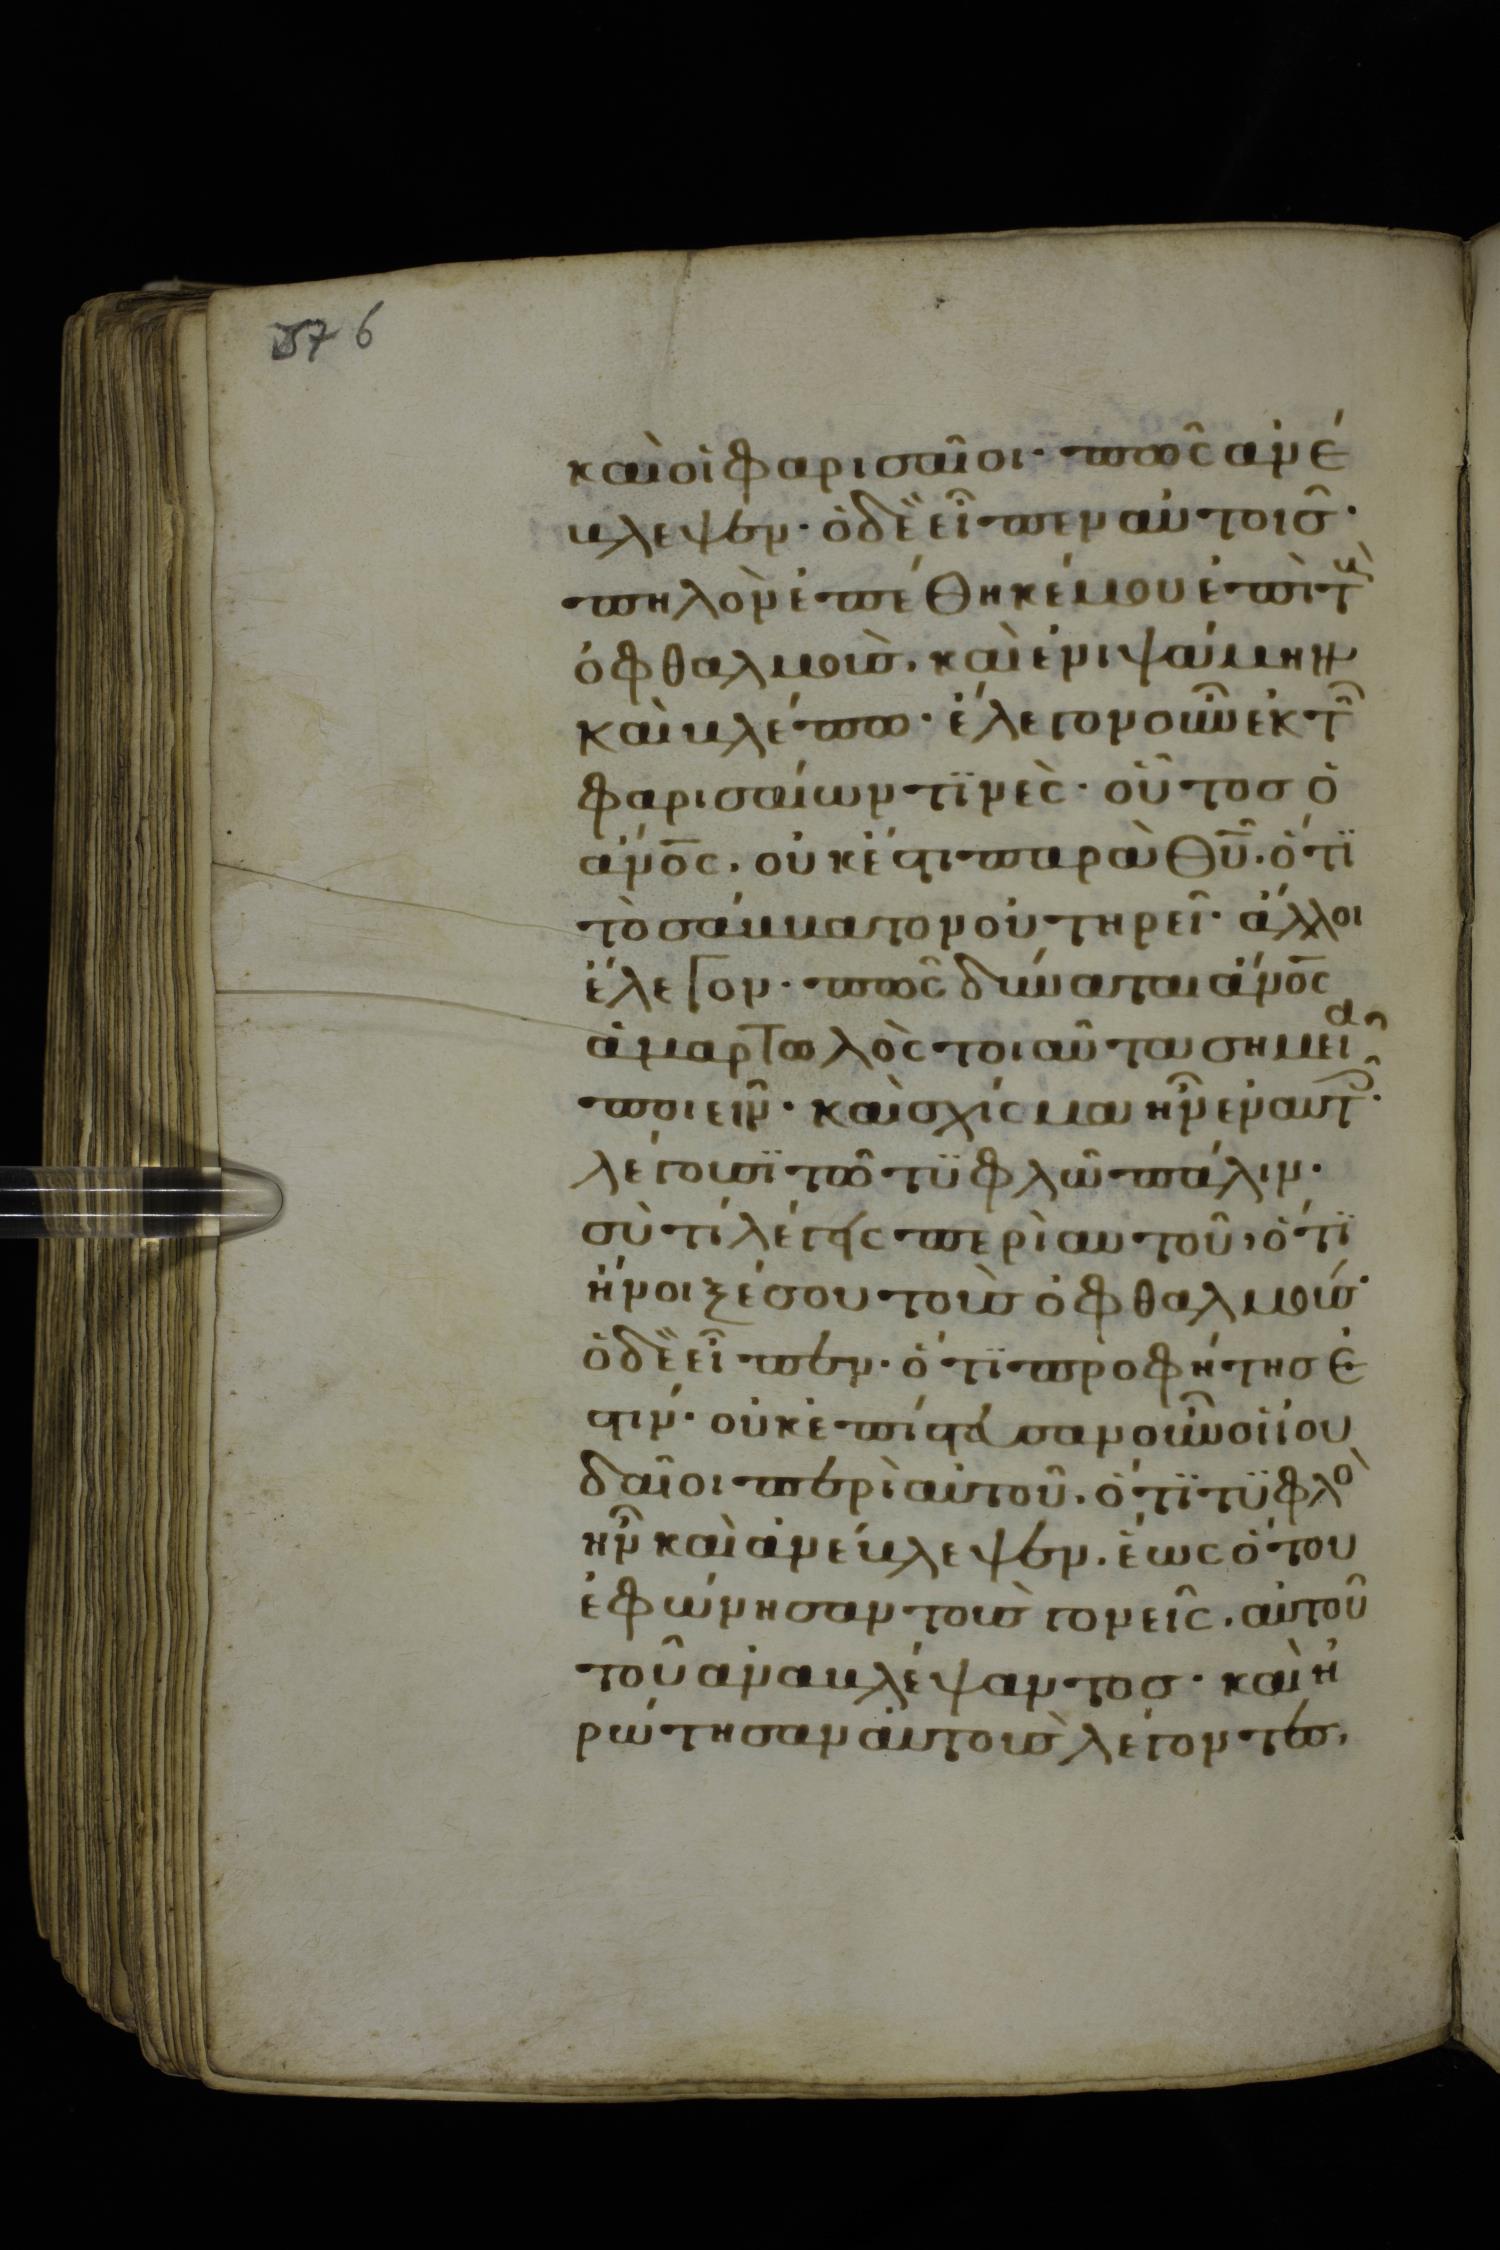 576
καὶ οἱ φαρισαῖοι· πῶς ἀνέ
βλεψεν· ὁ δὲ εἶπεν αὐτοῖς·
πηλὸν ἐπέθηκέ μου ἐπὶ τοὺ
ὀφθαλμοὺς, καὶ ἐνιψάμην
καὶ βλέπω· ἔλεγον οὖν ἐκ τῶ
φαρισαίων τϊνὲς· οὗτος ὁ
ἄνο̅ς, οὐκ ἔστι παρὰ θυ̅· ὅτϊ
τὸ σάββατον οὐ τηρεῖ· ἄλλοι
ἔλεγον· πῶς δύναται ἄνο̅ς
ἁμαρτωλὸς τοιαῦτα σημεῖα
ποιεῖν· καὶ σχίσμα ἦν ἐν αὐτ·
λέγουσϊ τῶ τϋφλῶ πάλιν·
σὺ τί λέγεις περὶ αυτοῦ, ὅτϊ
ἤνοιξέ σου τοὺς ὀφθαλμούς·
ὁ δὲ εἶπεν· ὅτϊ προφήτης ἐ
στιν· οὐκ ἐπίστευσαν οὖν οἱ ἰου
δαῖοι περὶ αὐτοῦ, ὅτϊ τϋφλὸ
ἦν καὶ ἀνέβλεψεν, ἕως ὅτου
ἐφώνησαν τοὺς γονεῖς, αὐτοῦ
τοῦ ἀναβλέψαντος· καὶ ἠ
ρώτησαν αὐτοὺς λέγοντες,